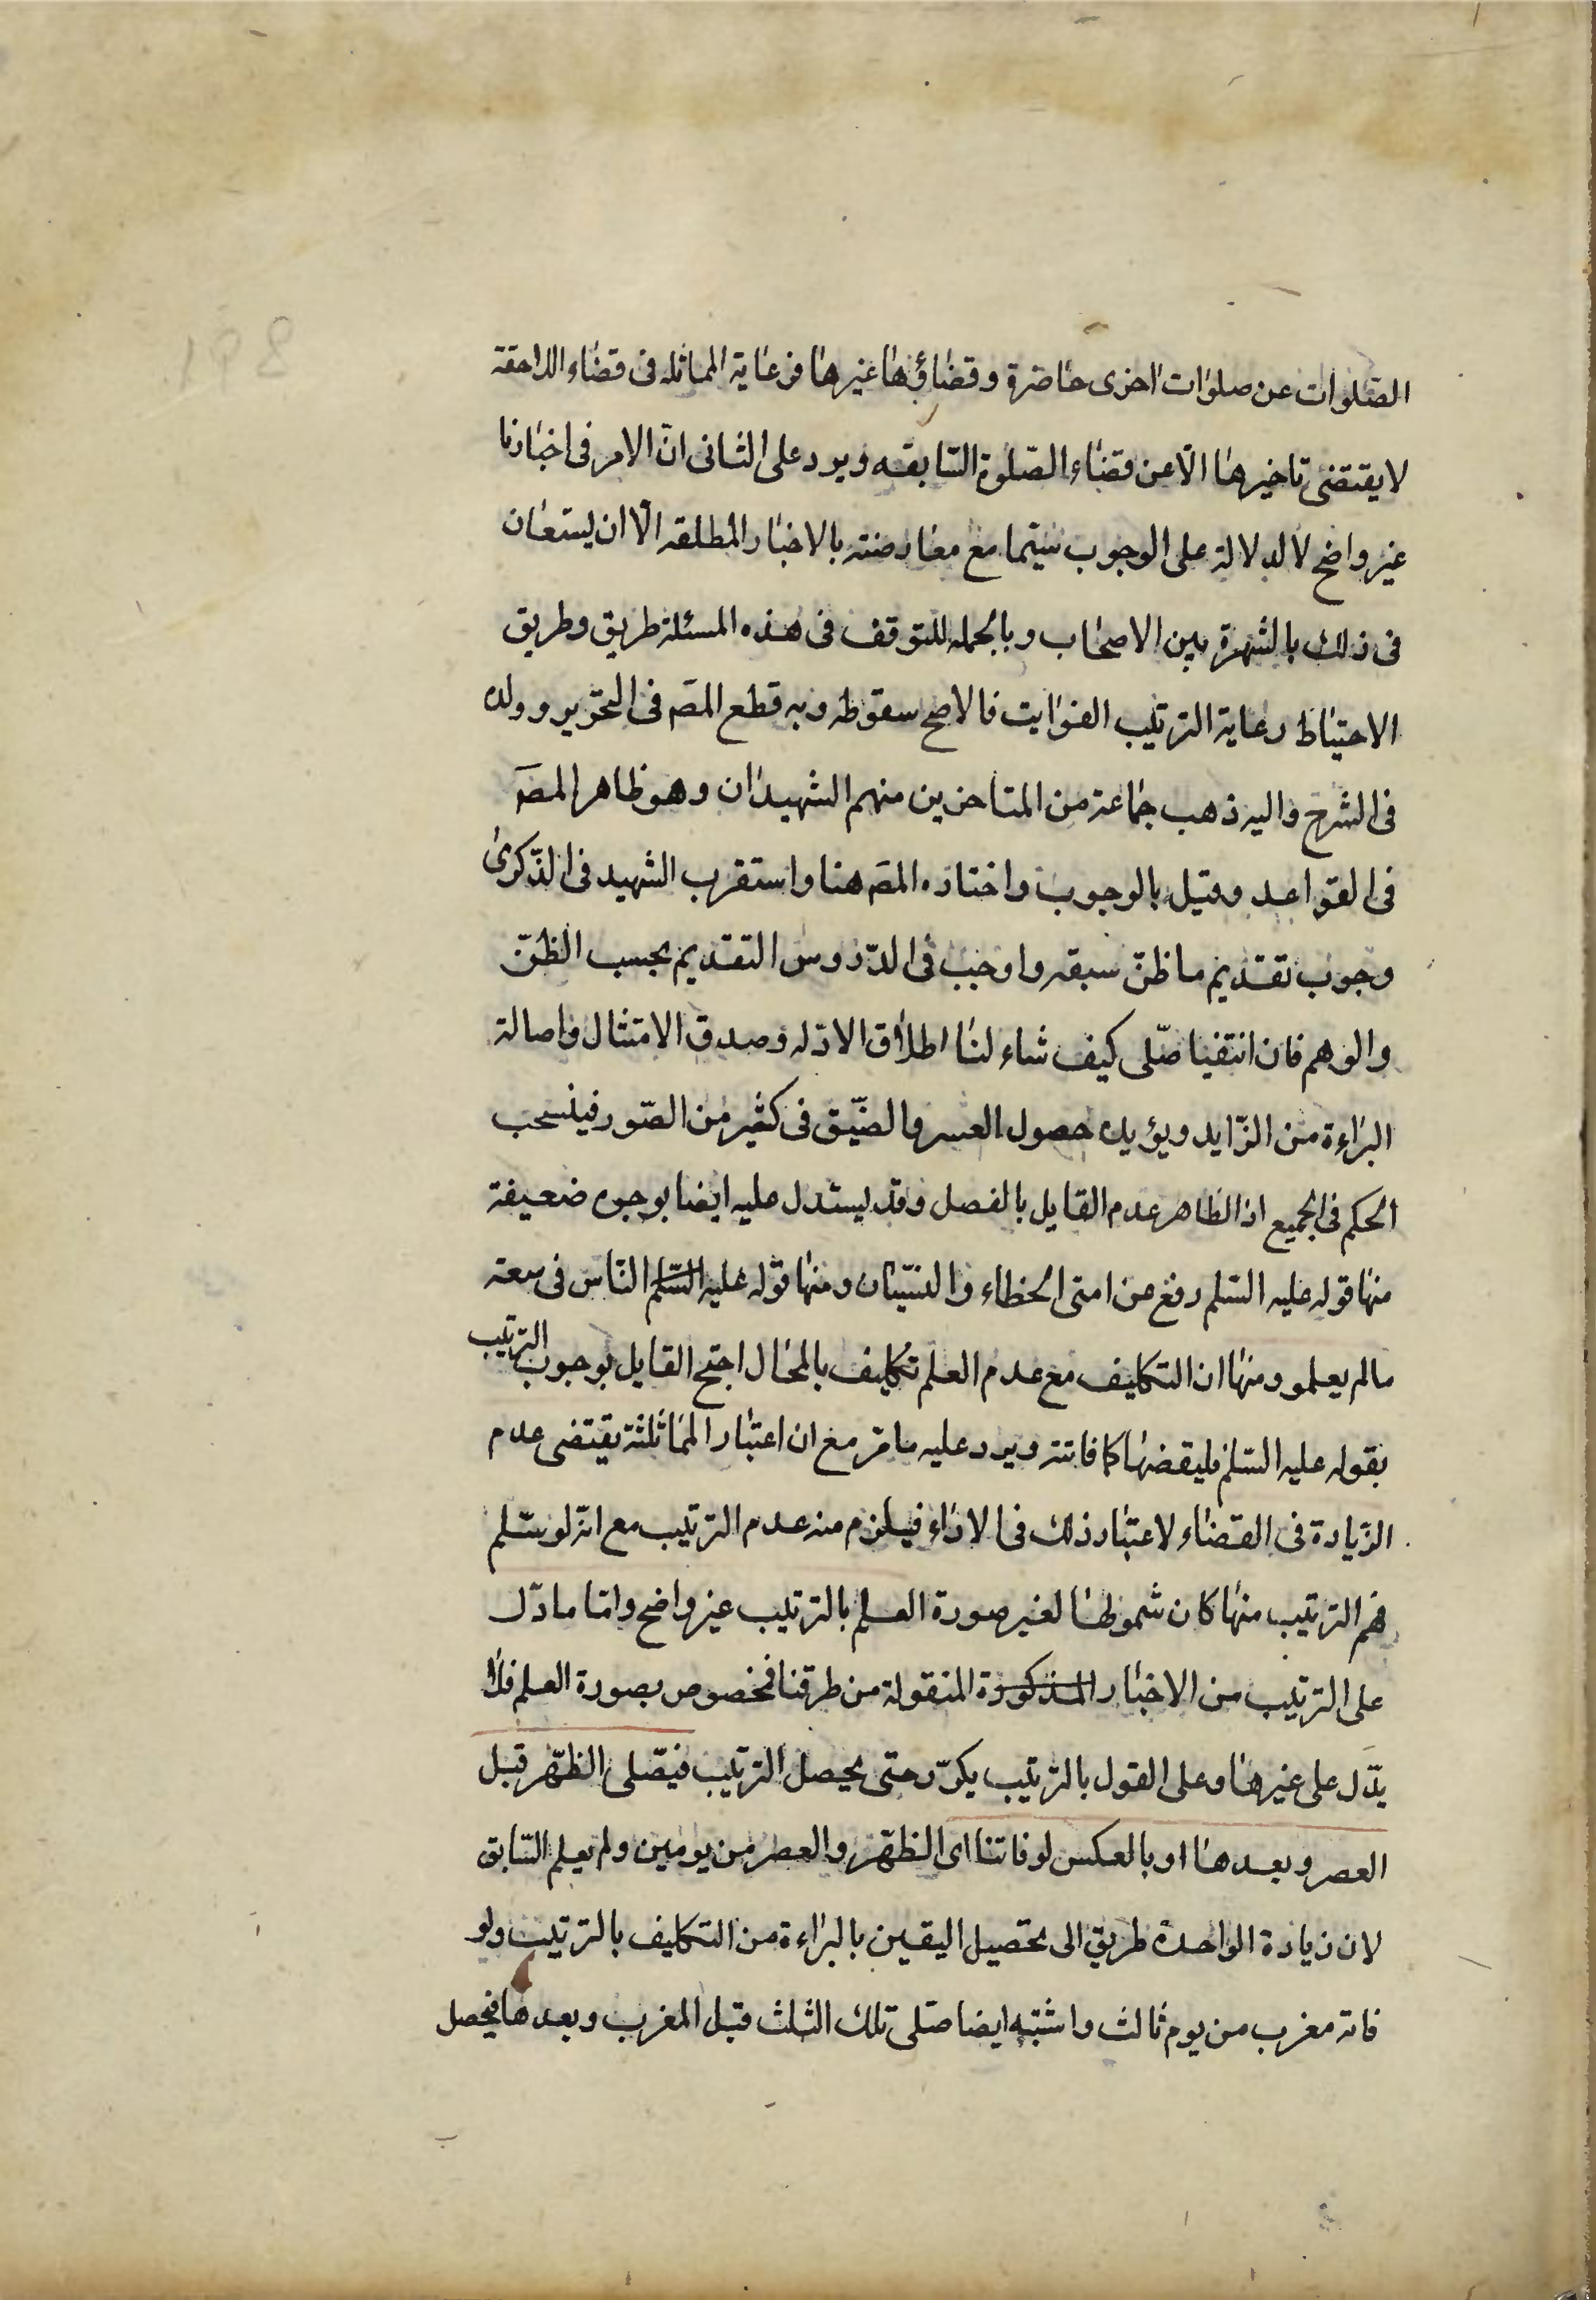 الصلوات عن صلوات اخرى حاضرة وقضاؤها غيرها فرعاية المماثله فى قضاء اللاحقة
لا يقتضى تاخيرها الّا عن قضاء الصّلوة السّابقه ويرد على الثانى انّ الامر فى اخبارنا
غير واضح الدلالة على الوجوب سيّما مع معارضته بالاخبار المطلقه الّا ان يستعان
فى ذلك بالشهرة بين الاصحاب وبالجمله للتوقف فى هذه المسئلة طريق وطريق
الاحتياط رعاية الترتيب الفوايت فالاصح سقوطه وبه قطع المصَ فى التحرير وولده
فى الشرح واليه ذهب جماعة من المتاخرين منهم الشهيدان وهو ظاهر المصَ
فى القواعد وقيل بالوجوب واختاره المصَ هنا واستقرب الشهيد فى الذّكرى
وجوب تقديم ما ظنّ سبقه واوجب فى الدّروس التقديم بحسب الظنّ
والوهم فان انتفيا صلّى كيف شاء لنا اطلاق الادّله وصدق الامتثال واصالة
البراءة من الزّايد ويؤيده حصول العسر والضّيق فى كثير من الصّور فينسحب
الحكم فى الجميع اذ الظاهر عدم القايل بالفصل وقد يستدل عليه ايضا بوجوه ضعيفة
منها قوله عليه السّلم رفع عن امتى الخطاء والنسيان ومنها قوله عليه السّلم النّاس فى سعة
مالم يعلمو ومنها ان التكليف مع عدم العلم تكليف بالمحال احتج القايل بوجوب الترتيب
بقوله عليه السّلم فليقضها كما فاتته ويرد عليه ما مرّ مع ان اعتبار المماثلة يقتضى عدم
الزّيادة فى القضاء لاعتبار ذلك فى الاداء فيلزم منه عدم الترتيب مع انّه لو سّلم
فهم الترتيب منها كان شمولها لغير صورة العلم بالترتيب غير واضح وامّا ما دّل
على الترتيب من الاخبار المذكورة المنقولة من طرقنا فمخصوص بصورة العلم فلا
يدّل على غيرها وعلى القول بالترتيب يكرّر حتى يحصل الترتيب فيصّلى الظّهر قبل
العصر وبعدها او بالعكس لو فاتتا اى الظّهر والعصر من يومين ولم يعلم السّابق
لان زيادة الواحدة طريق الى تحصيل اليقين بالبراءة من التكليف بالترتيب ولو
فاته مغرب من يوم ثالث واشتبه ايضا صلّى تلك الثلث قبل المغرب وبعدها فيحصل